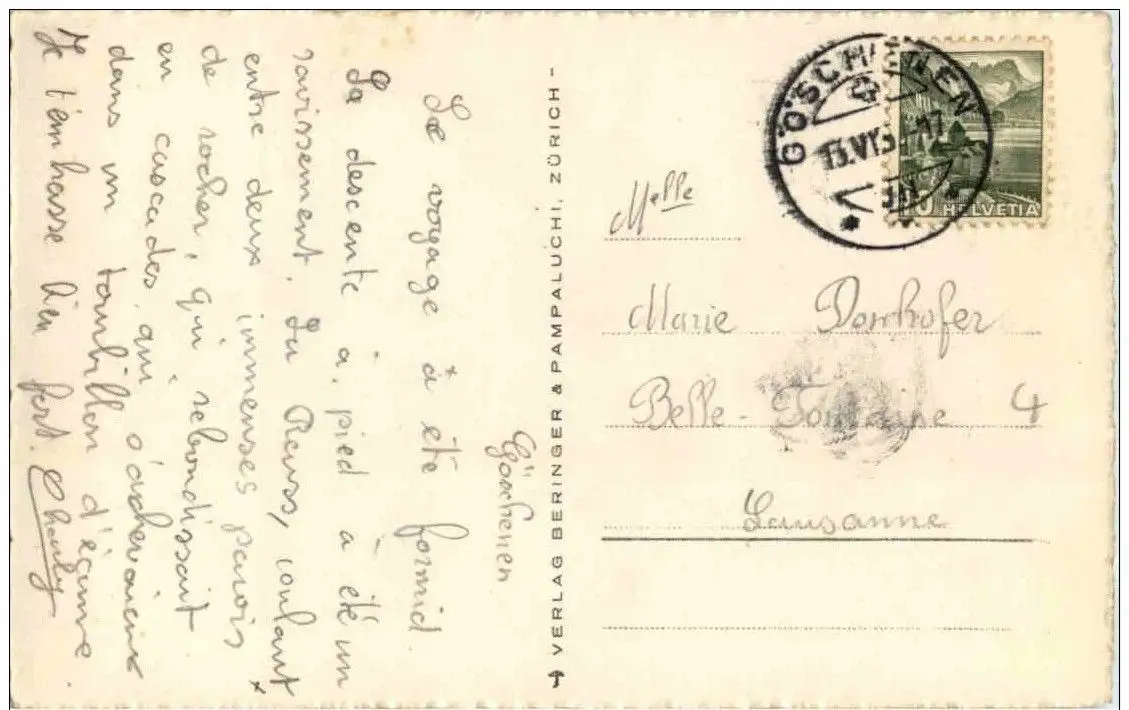 Göschenen
Le voyage à été formid.
La descente à pied à été un
ravissement. La Reuss, coulant
entre deux immenses parois
de rocher, qui rebondissait
en cascades qui s'achevaient
dans un tourbillon d'écume.
Je t'embrasse bien fort.
VERLAG BERINGER & PAMPALUCHI, ZÜRICH -
GÖSCHENEN
HELVETIA
Melle
Marie Dorchofer
Belle-Fontaine 4
Lausanne